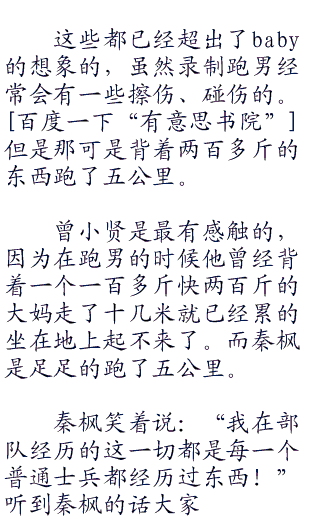 这些都已经超出了baby
的想象的，虽然录制跑男经
常会有一些擦伤、碰伤的。
[百度一下“有意思书院”]
但是那可是背着两百多斤的
东西跑了五公里。
曾小贤是最有感触的，
因为在跑男的时候他曾经背
着一个一百多斤快两百斤的
大妈走了十几米就已经累的
坐在地上起不来了。而秦枫
是足足的跑了五公里。
秦枫笑着说：“我在部
队经历的这一切都是每一个
普通士兵都经历过东西！”
听到秦枫的话大家